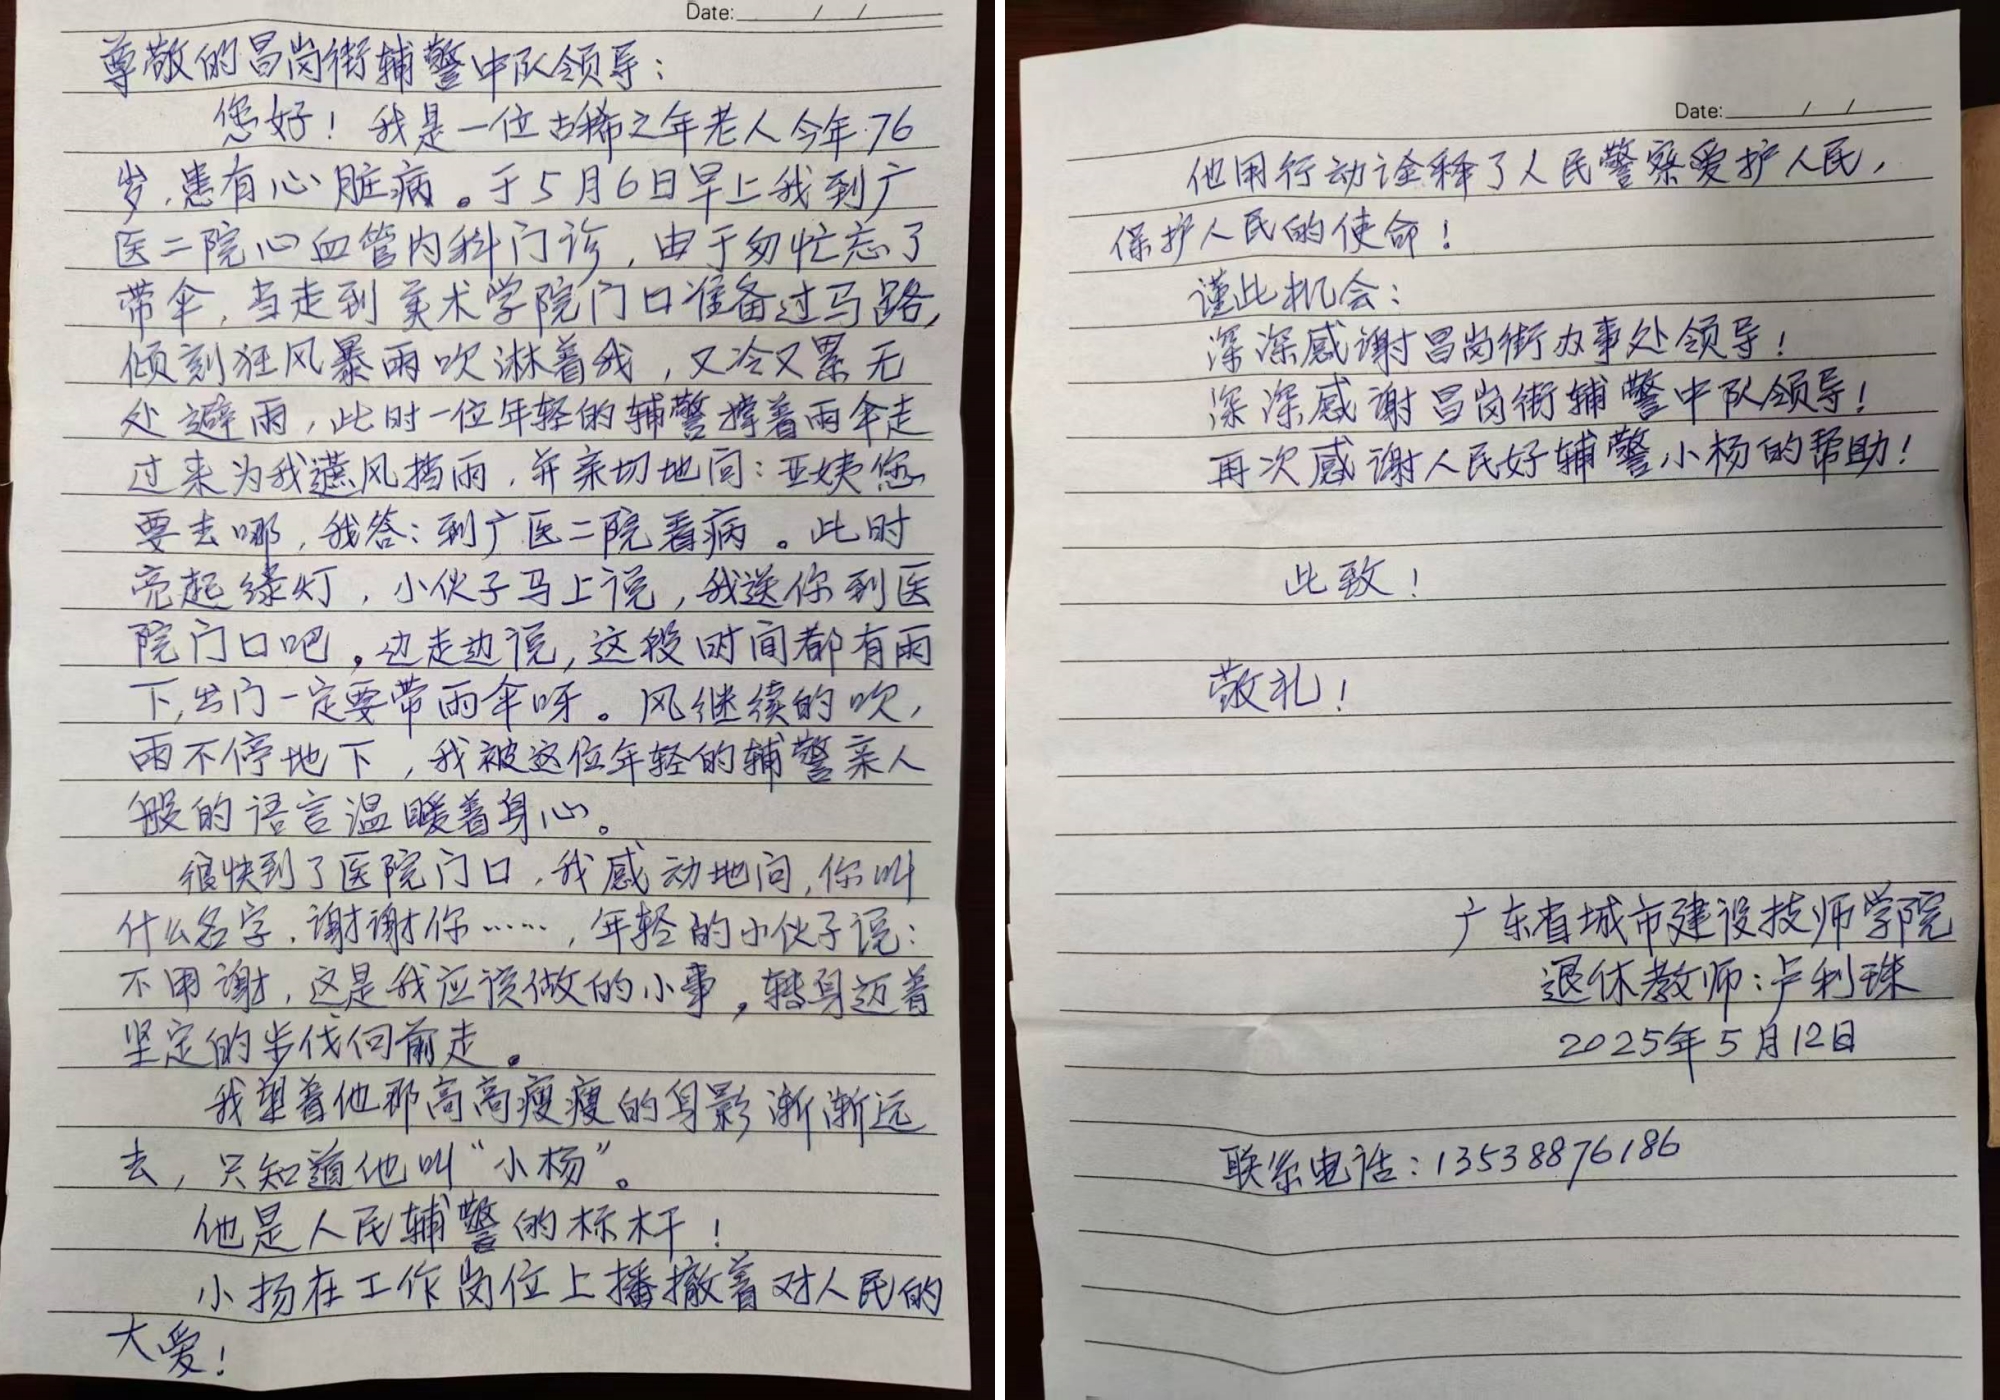 Date: / /
尊敬的昌岗街辅警中队领导：
您好！我是一位古稀之年老人今年76
岁，患有心脏病。于5月6日早上我到广
医二院心血管内科门诊，由于匆忙忘了
带伞，当走到美术学院门口准备过马路，
倾刻狂风暴雨吹淋着我，又冷又累无
处避雨，此时一位年轻的辅警撑着雨伞走
过来为我遮风挡雨，并亲切地问：亚姨您
要去哪，我答：到广医二院看病。此时
亮起绿灯，小伙子马上说，我送你到医
院门口吧。边走边说，这段时间都有雨
下，出门一定要带雨伞呀。风继续的吹，
雨不停地下，我被这位年轻的辅警亲人
般的语言温暖着身心。
很快到了医院门口，我感动地问，你叫
什么名字，谢谢你……，年轻的小伙子说：
不用谢，这是我应该做的小事。转身迈着
坚定的步伐向前走。
我望着他那高高瘦瘦的身影渐渐远
去，只知道他叫“小杨”。
他是人民辅警的标杆！
小扬在工作岗位上播撤着对人民的
大爱！
Date: / /
他用行动诠释了人民警察爱护人民，
保护人民的使命！
谨此机会：
深深感谢昌岗街办事处领导！
深深感谢昌岗街辅警中队领导！
再次感谢人民好辅警小杨的帮助！
此致！
敬礼！
广东省城市建设技师学院
退休教师：卢利珠
2025年5月12日
联系电话：13538876186